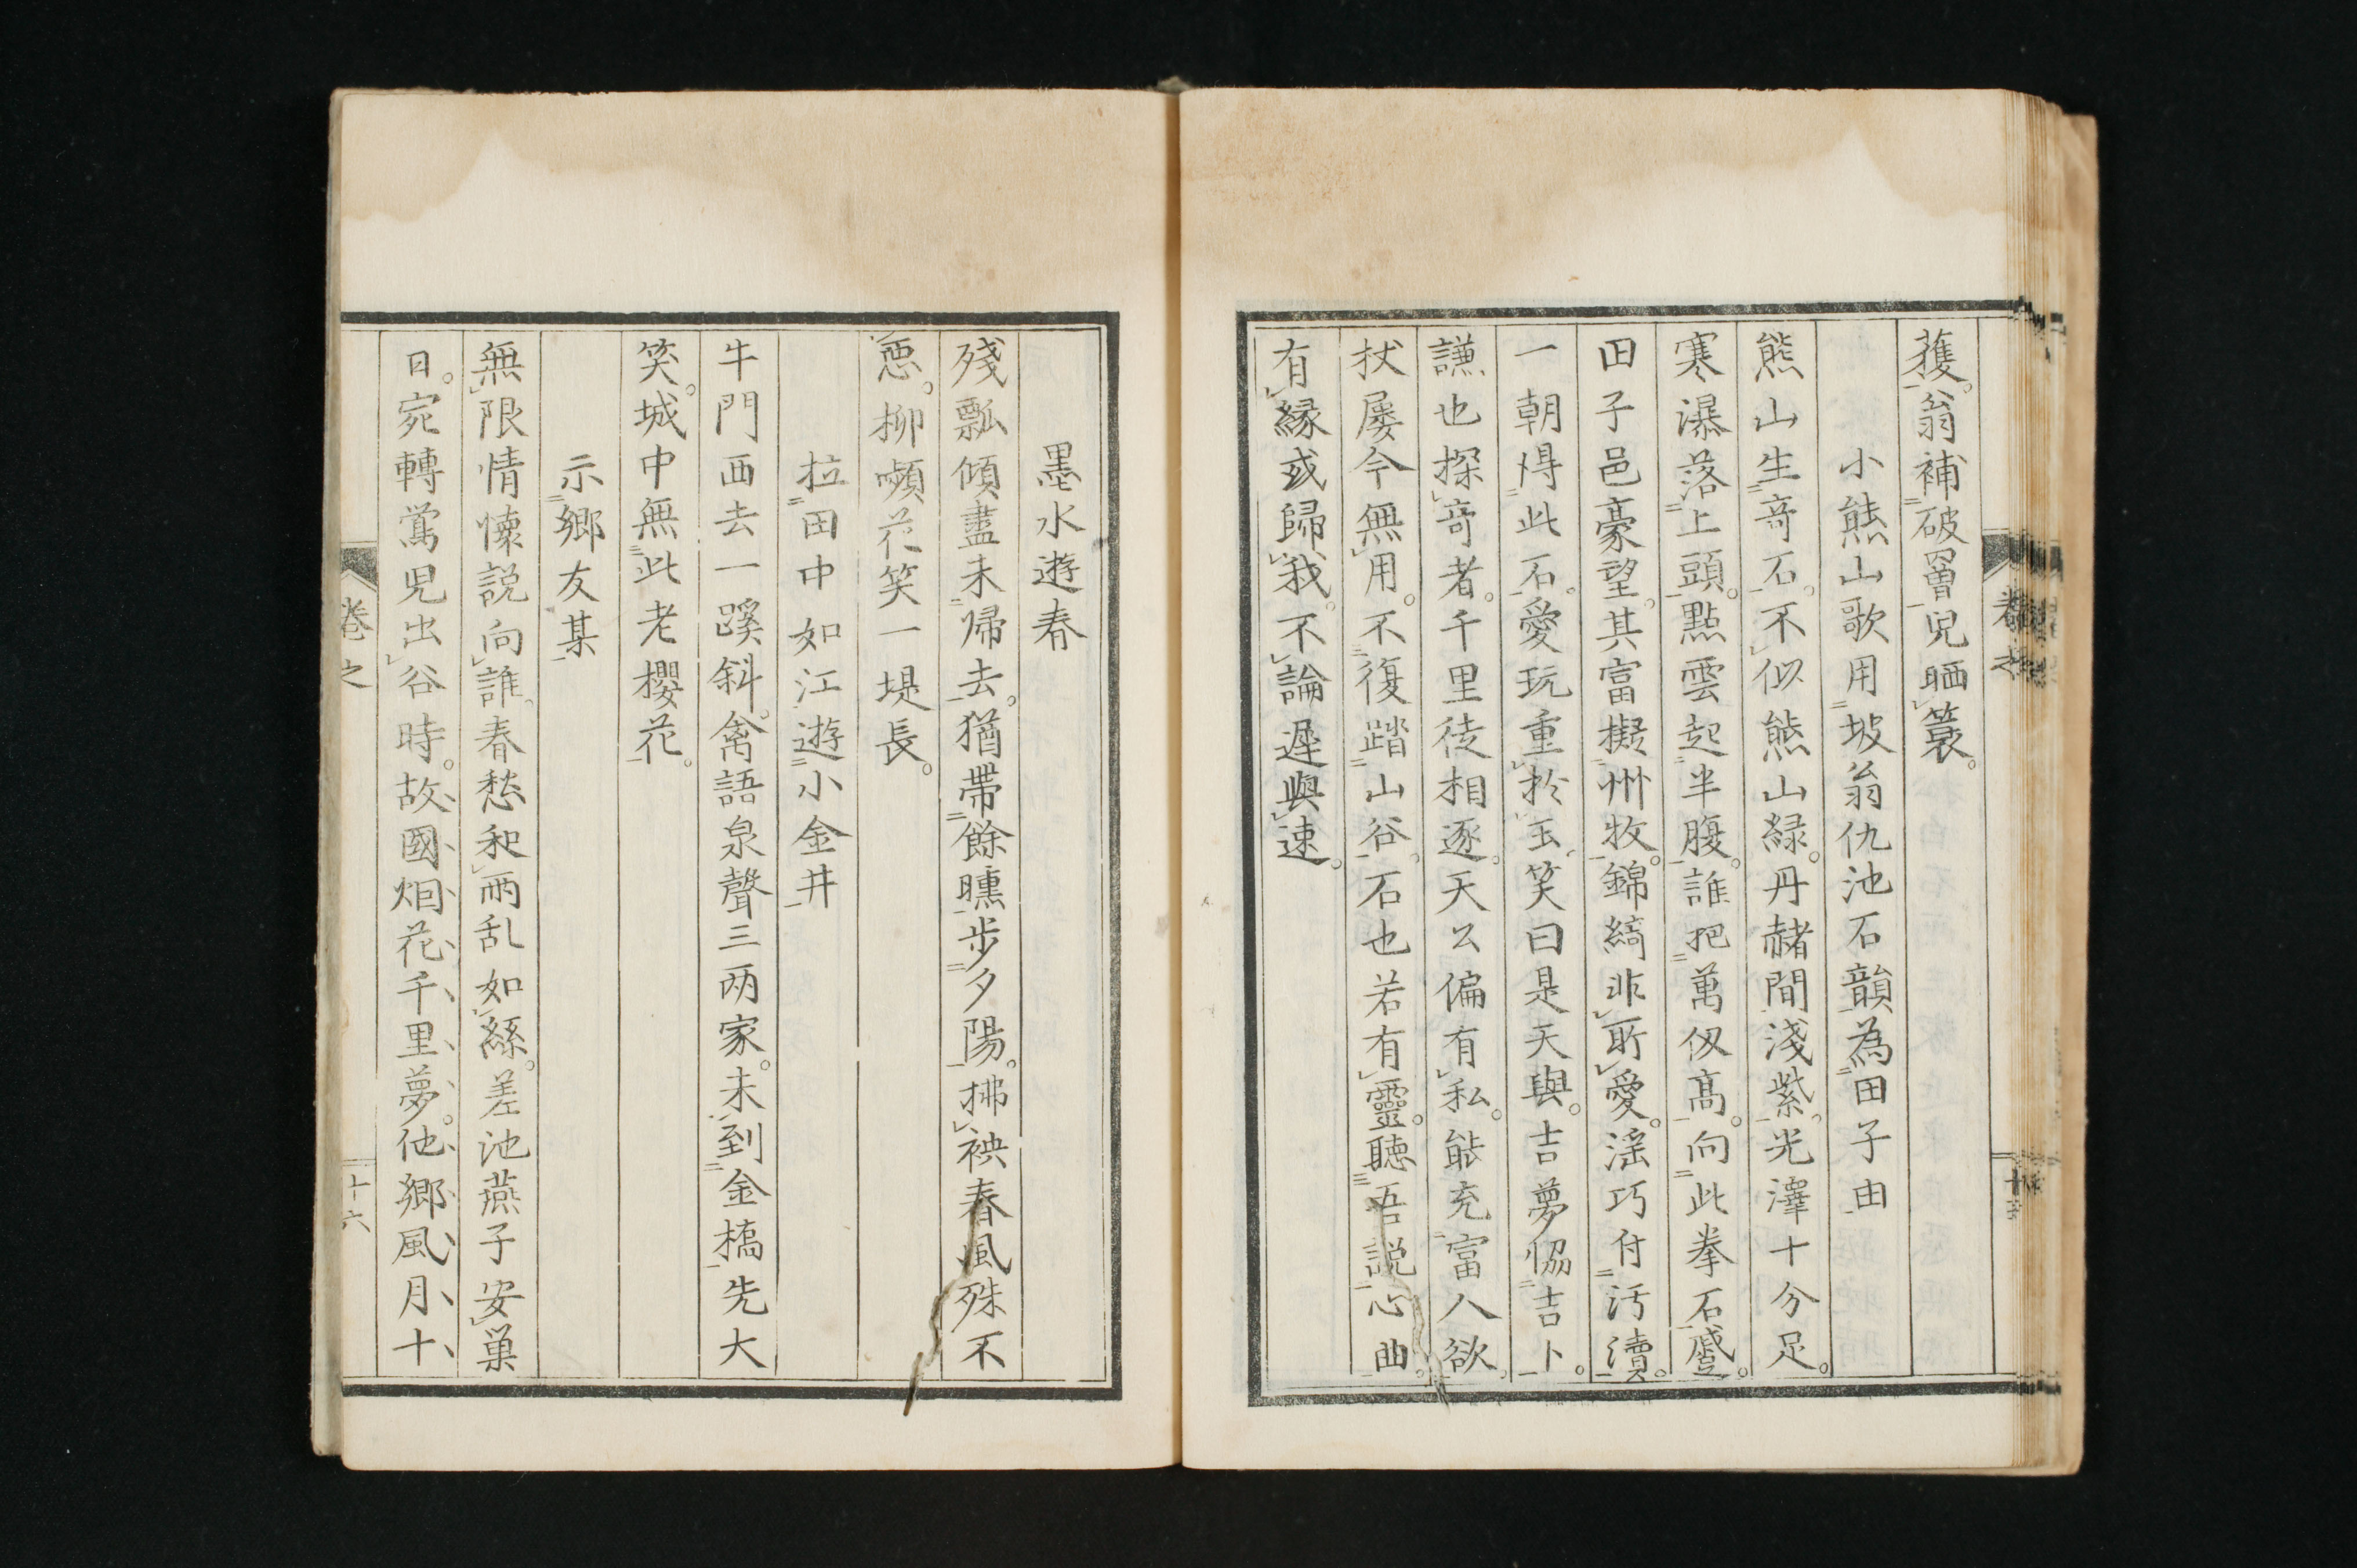 獲。翁補破罾兒晒簑。
小熊山歌用坡翁仇池石韻為田子由
熊山生竒石。不似熊山緑。丹赭間淺紫。光澤十分足。
寒瀑落上頭。點雲起半腹。誰把萬仭髙。向此拳石蹙。
田子邑豪望。其富擬州牧。錦綺非所愛。滛巧付汚瀆。
一朝得此石。愛玩重於玉。笑曰是天與。吉夢恊吉卜。
謙也探竒者。千里徒相逐。天公偏有私。能充富人欲。
杖屡今無用。不復踏山谷。石也若有靈。聽吾説心曲。
有縁或歸我。不論遲與速。
墨水遊春
殘瓢傾盡未帰去。猶帶餘曛步夕陽。拂袂春風殊不
悪。柳嚬花笑一堤長。
拉田中如江遊小金井
牛門西去一蹊斜。禽語泉聲三兩家。未到金橋先大
笑。城中無此老櫻花。
示鄉友某
無限情懐説向誰。春愁和雨乱如絲。差池燕子安巣
日。宛轉鶯児出谷時。故國烟花千里夢。他鄉風月十
卷之
十六